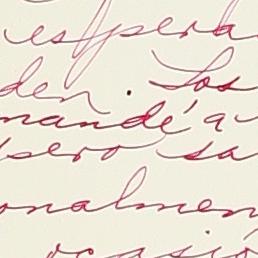 espera
den. Los
mandé a
pero sa
onalmen
ocasió